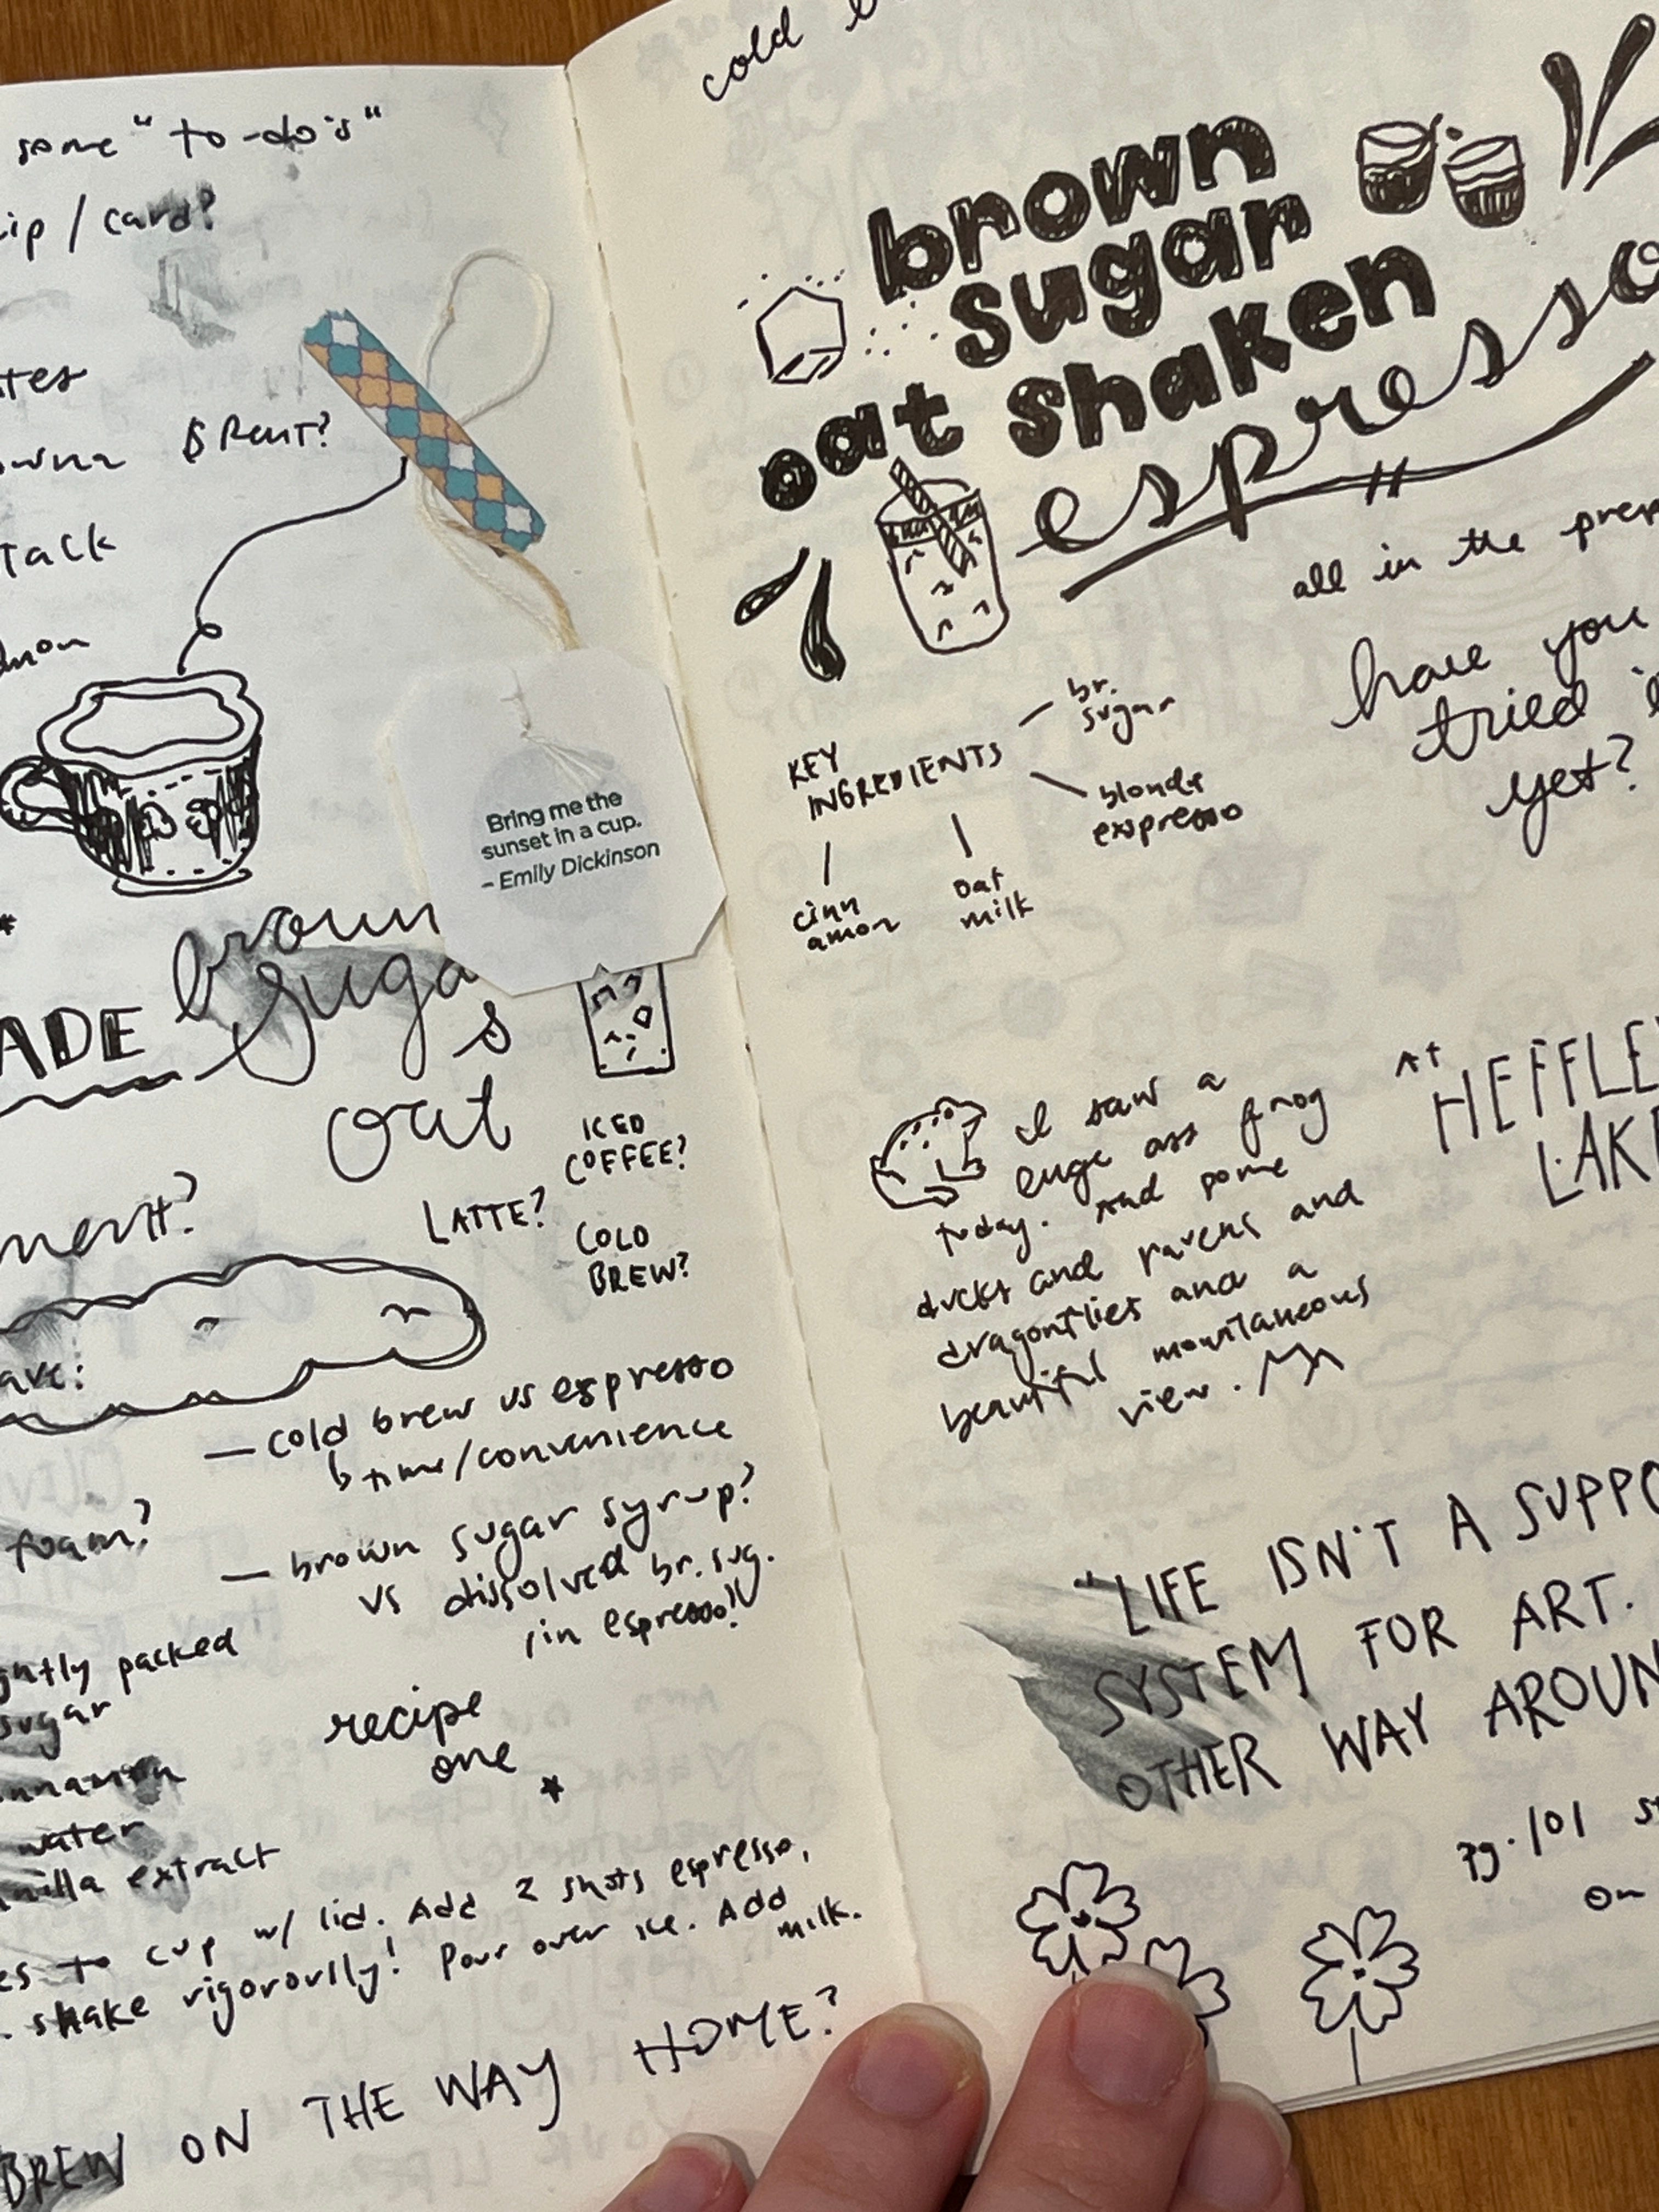 some "to-do's"
/ card?
$ RENT?
Bring me the
sunset in a cup.
– Emily Dickinson
brown
oat
ICED
COFFEE?
LATTE?
COLD
BREW?
— cold brew vs espresso
time/convenience
foam?
— brown sugar syrup?
vs dissolved br. sug.
in espresso?
packed
sugar
recipe
one *
water
extract
to cup w/ lid. Add 2 shots espresso,
shake rigorously! Pour over ice. Add
milk.
BREW ON THE WAY HOME?
cold
brown
sugar
oat shaken
espresso
all in the prep
have you
tried
yet?
KEY
INGREDIENTS
br.
sugar
blonde
espresso
cinn
amon
oat
milk
I saw a
huge ass frog
today. And some
ducks and ravens and
dragonflies and a
beautiful mountaneous
view.
AT
"LIFE ISN'T A
SYSTEM FOR ART.
OTHER WAY
pg. 101
on